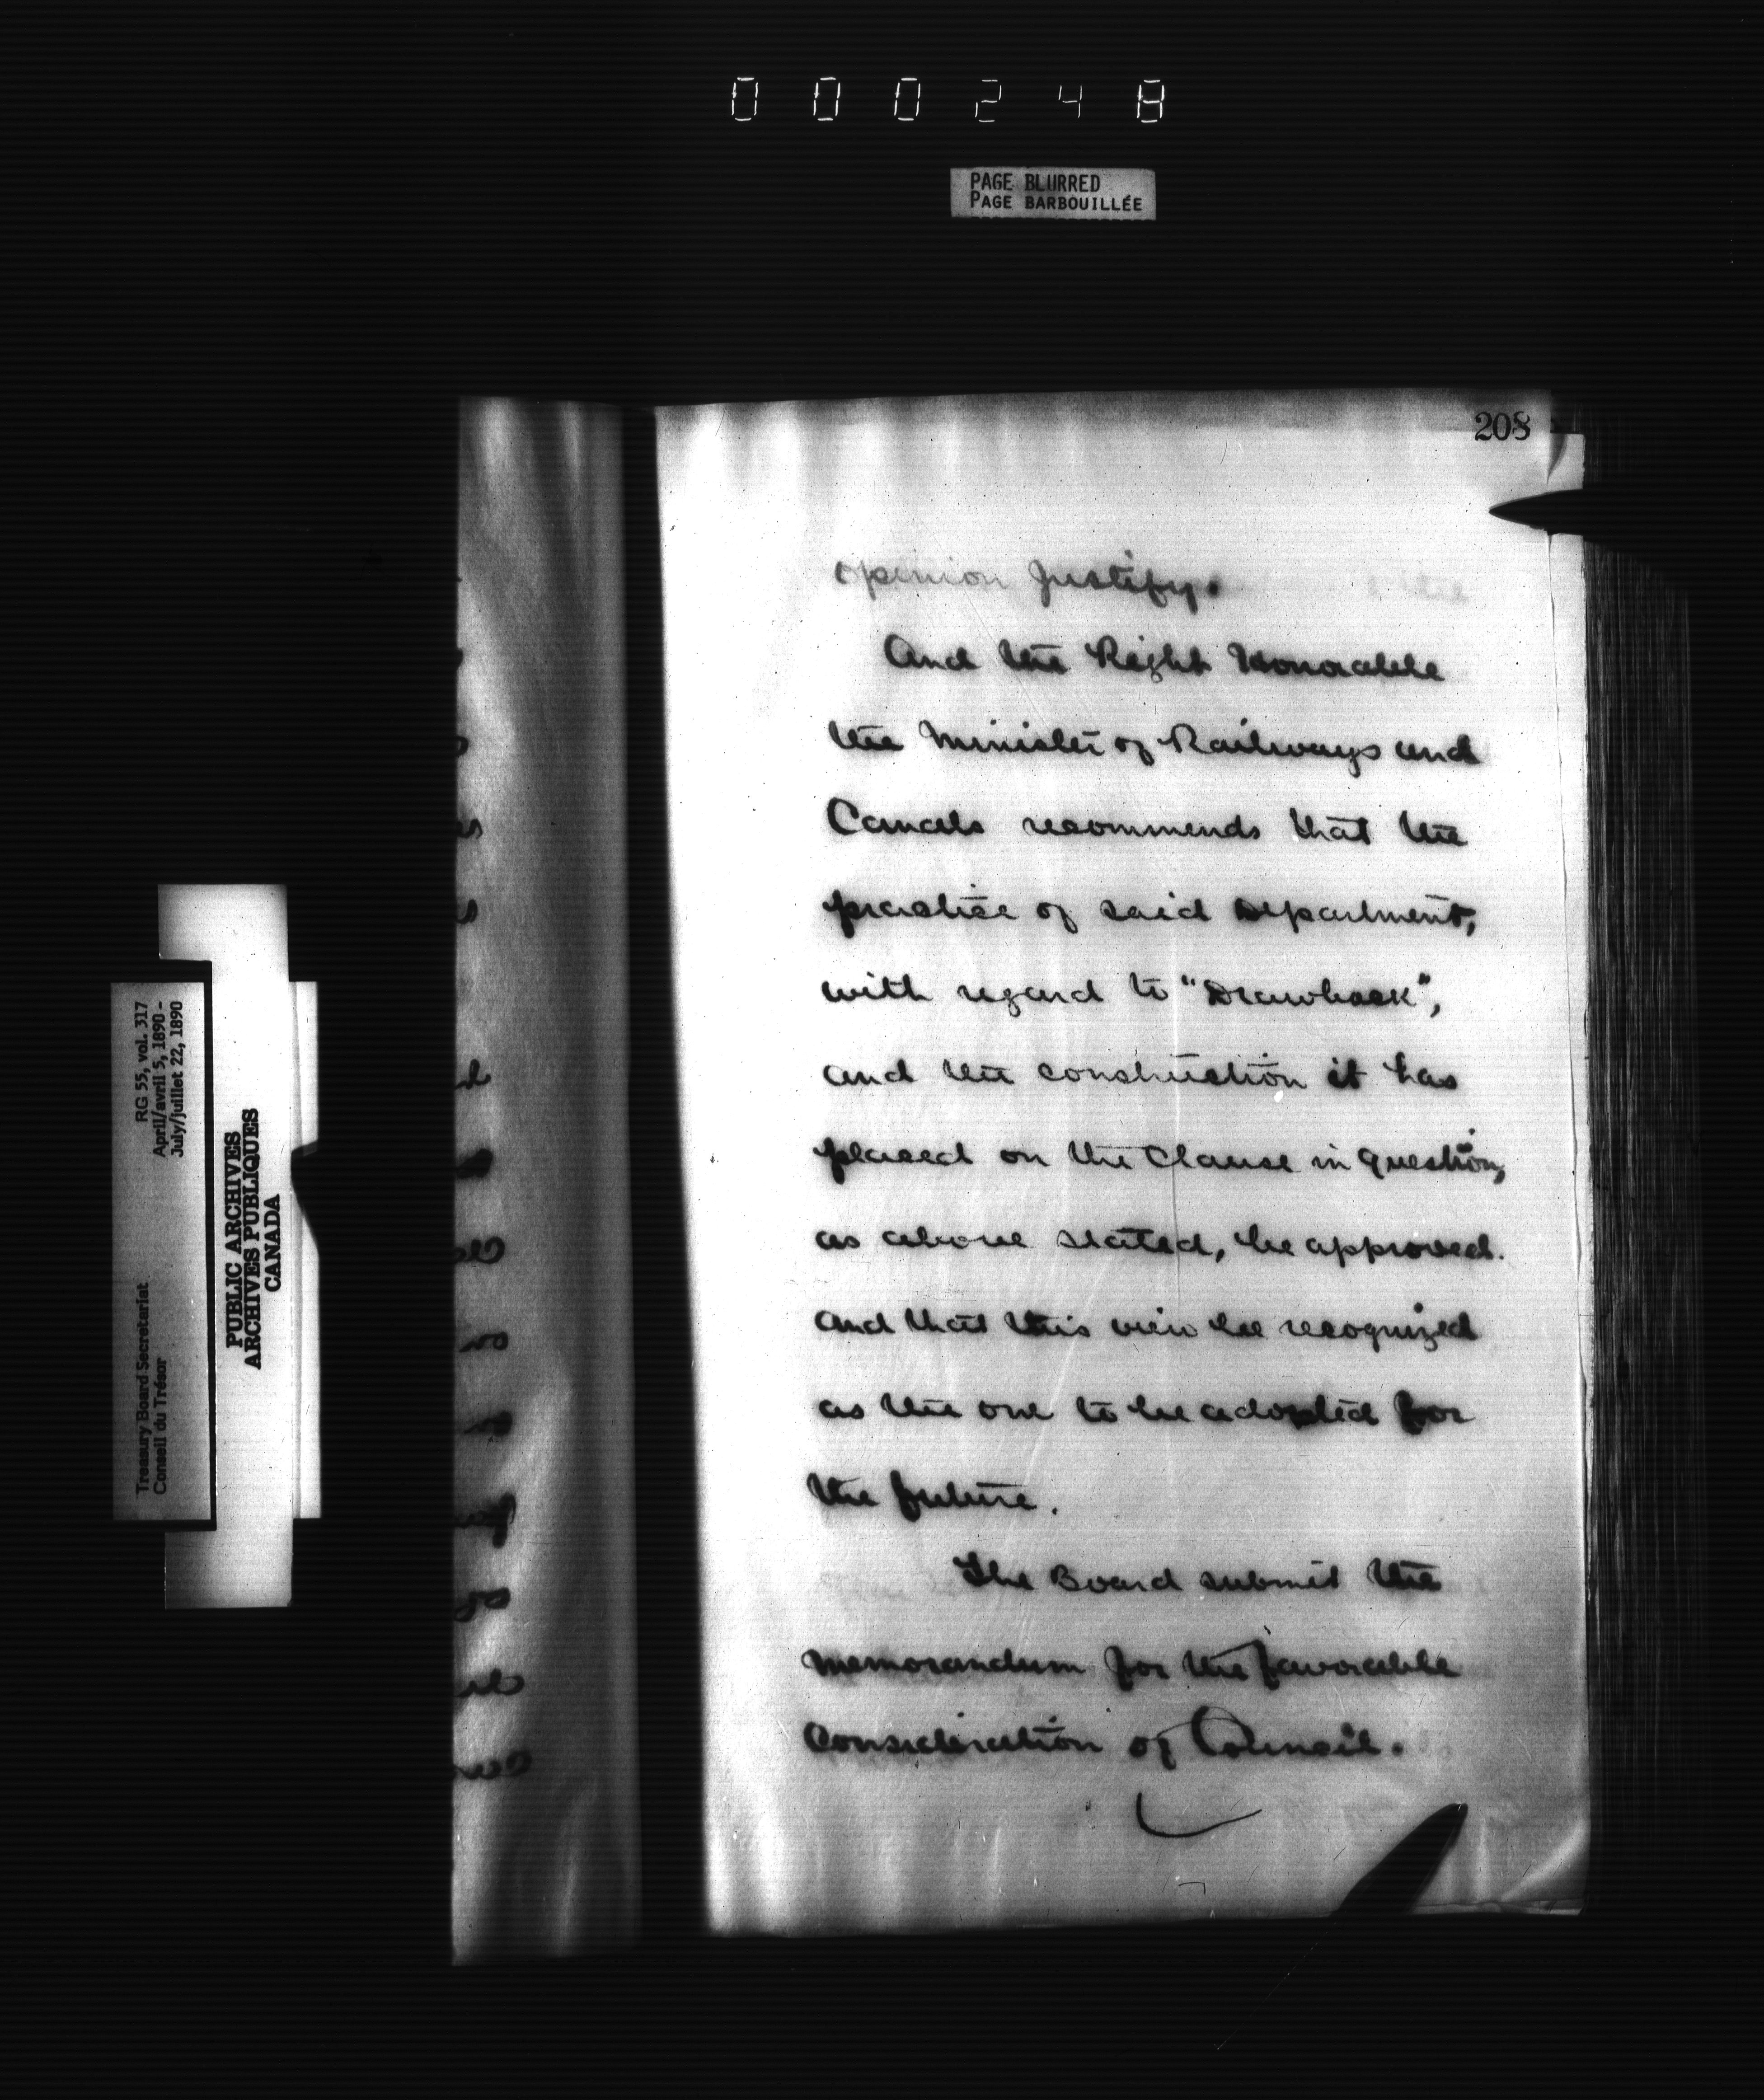 000248
PAGE BLURRED
PAGE BARBOUILLÉE
208
opinion justify.
And the Right Honorable
the Minister of Railways and
Canals recommends that the
practice of said Department,
with regard to "Drawback",
and the construction it has
placed on the Clause in question,
as above stated, be approved.
and that this view be recognized
as the one to be adopted for
the future.
The Board submit the
memorandum for the favorable
Consideration of Council.
Treasury Board Secretariat
Conseil du Trésor
RG 55, vol. 317
April/avril 5, 1890 -
July/juillet 22, 1890
PUBLIC ARCHIVES
ARCHIVES PUBLIQUES
CANADA